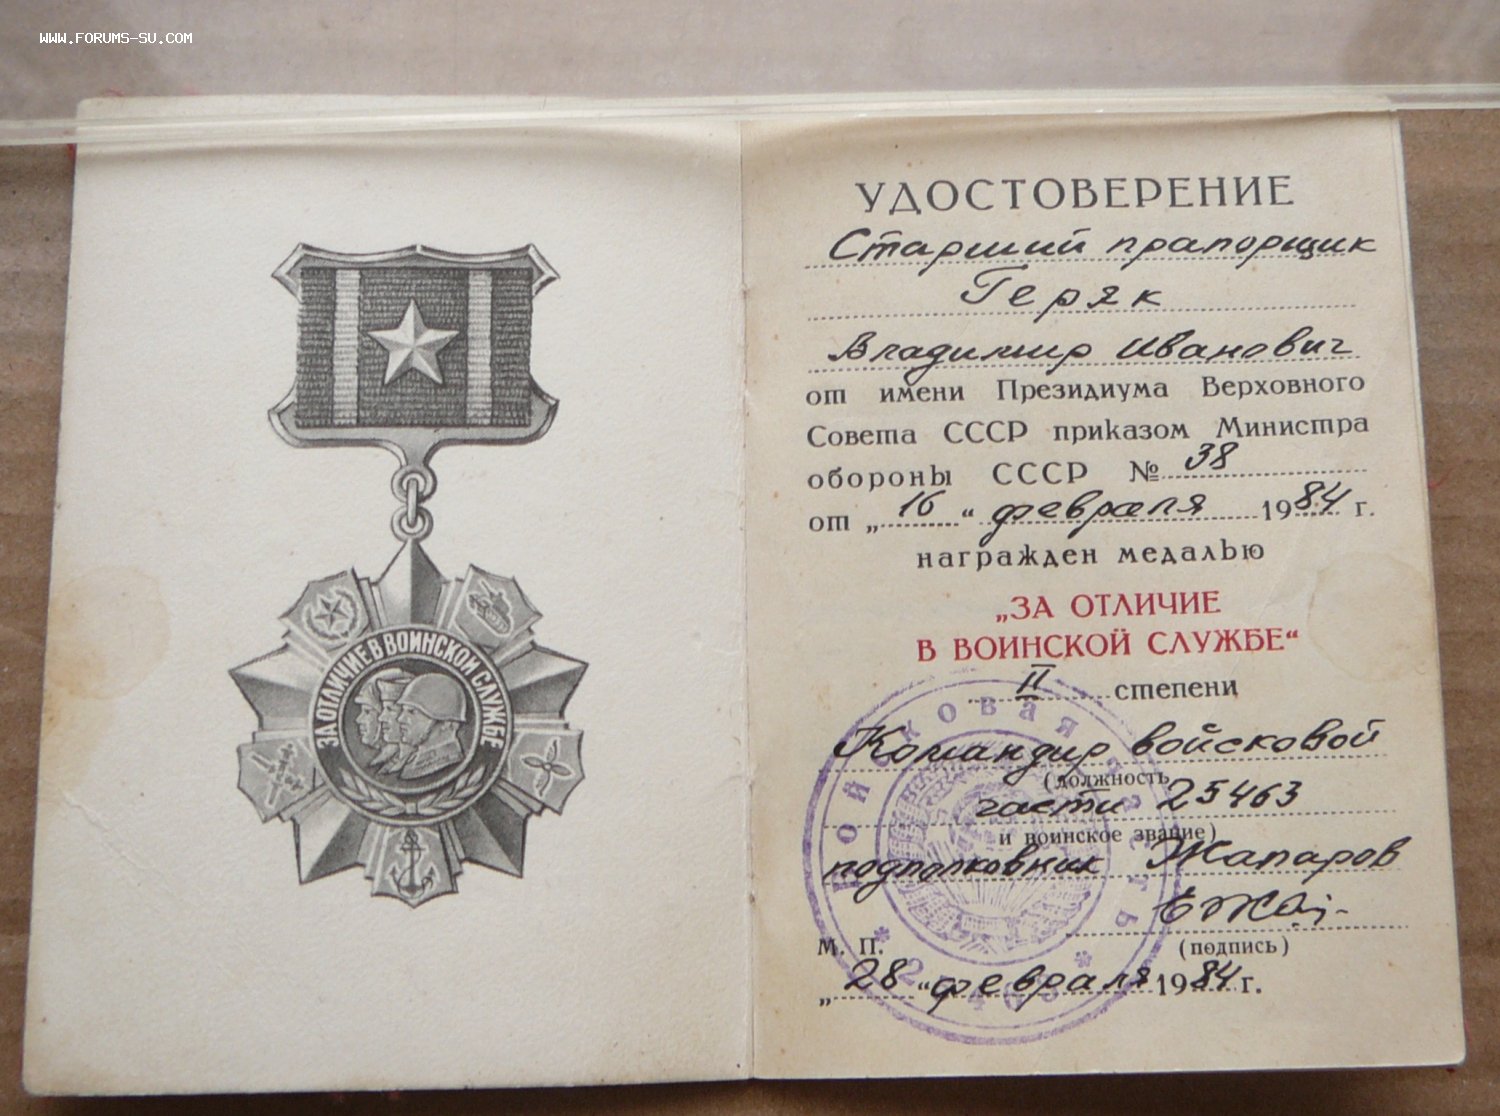 WWW.FORUMS-SU.COM
ЗА ОТЛИЧИЕ В ВОИНСКОЙ СЛУЖБЕ
УДОСТОВЕРЕНИЕ
Старший прапорщик
Геряк
Владимир Иванович
от имени Президиума Верховного
Совета СССР приказом Министра
обороны СССР № 38
от „16“ февраля 1984 г.
награжден медалью
„ЗА ОТЛИЧИЕ
В ВОИНСКОЙ СЛУЖБЕ“
II степени
Командир войсковой
(должность
части 25463
и воинское звание)
подполковник Жапаров
(подпись)
М. П.
„28“ февраля 1984 г.
Войсковая часть
* 25463 *